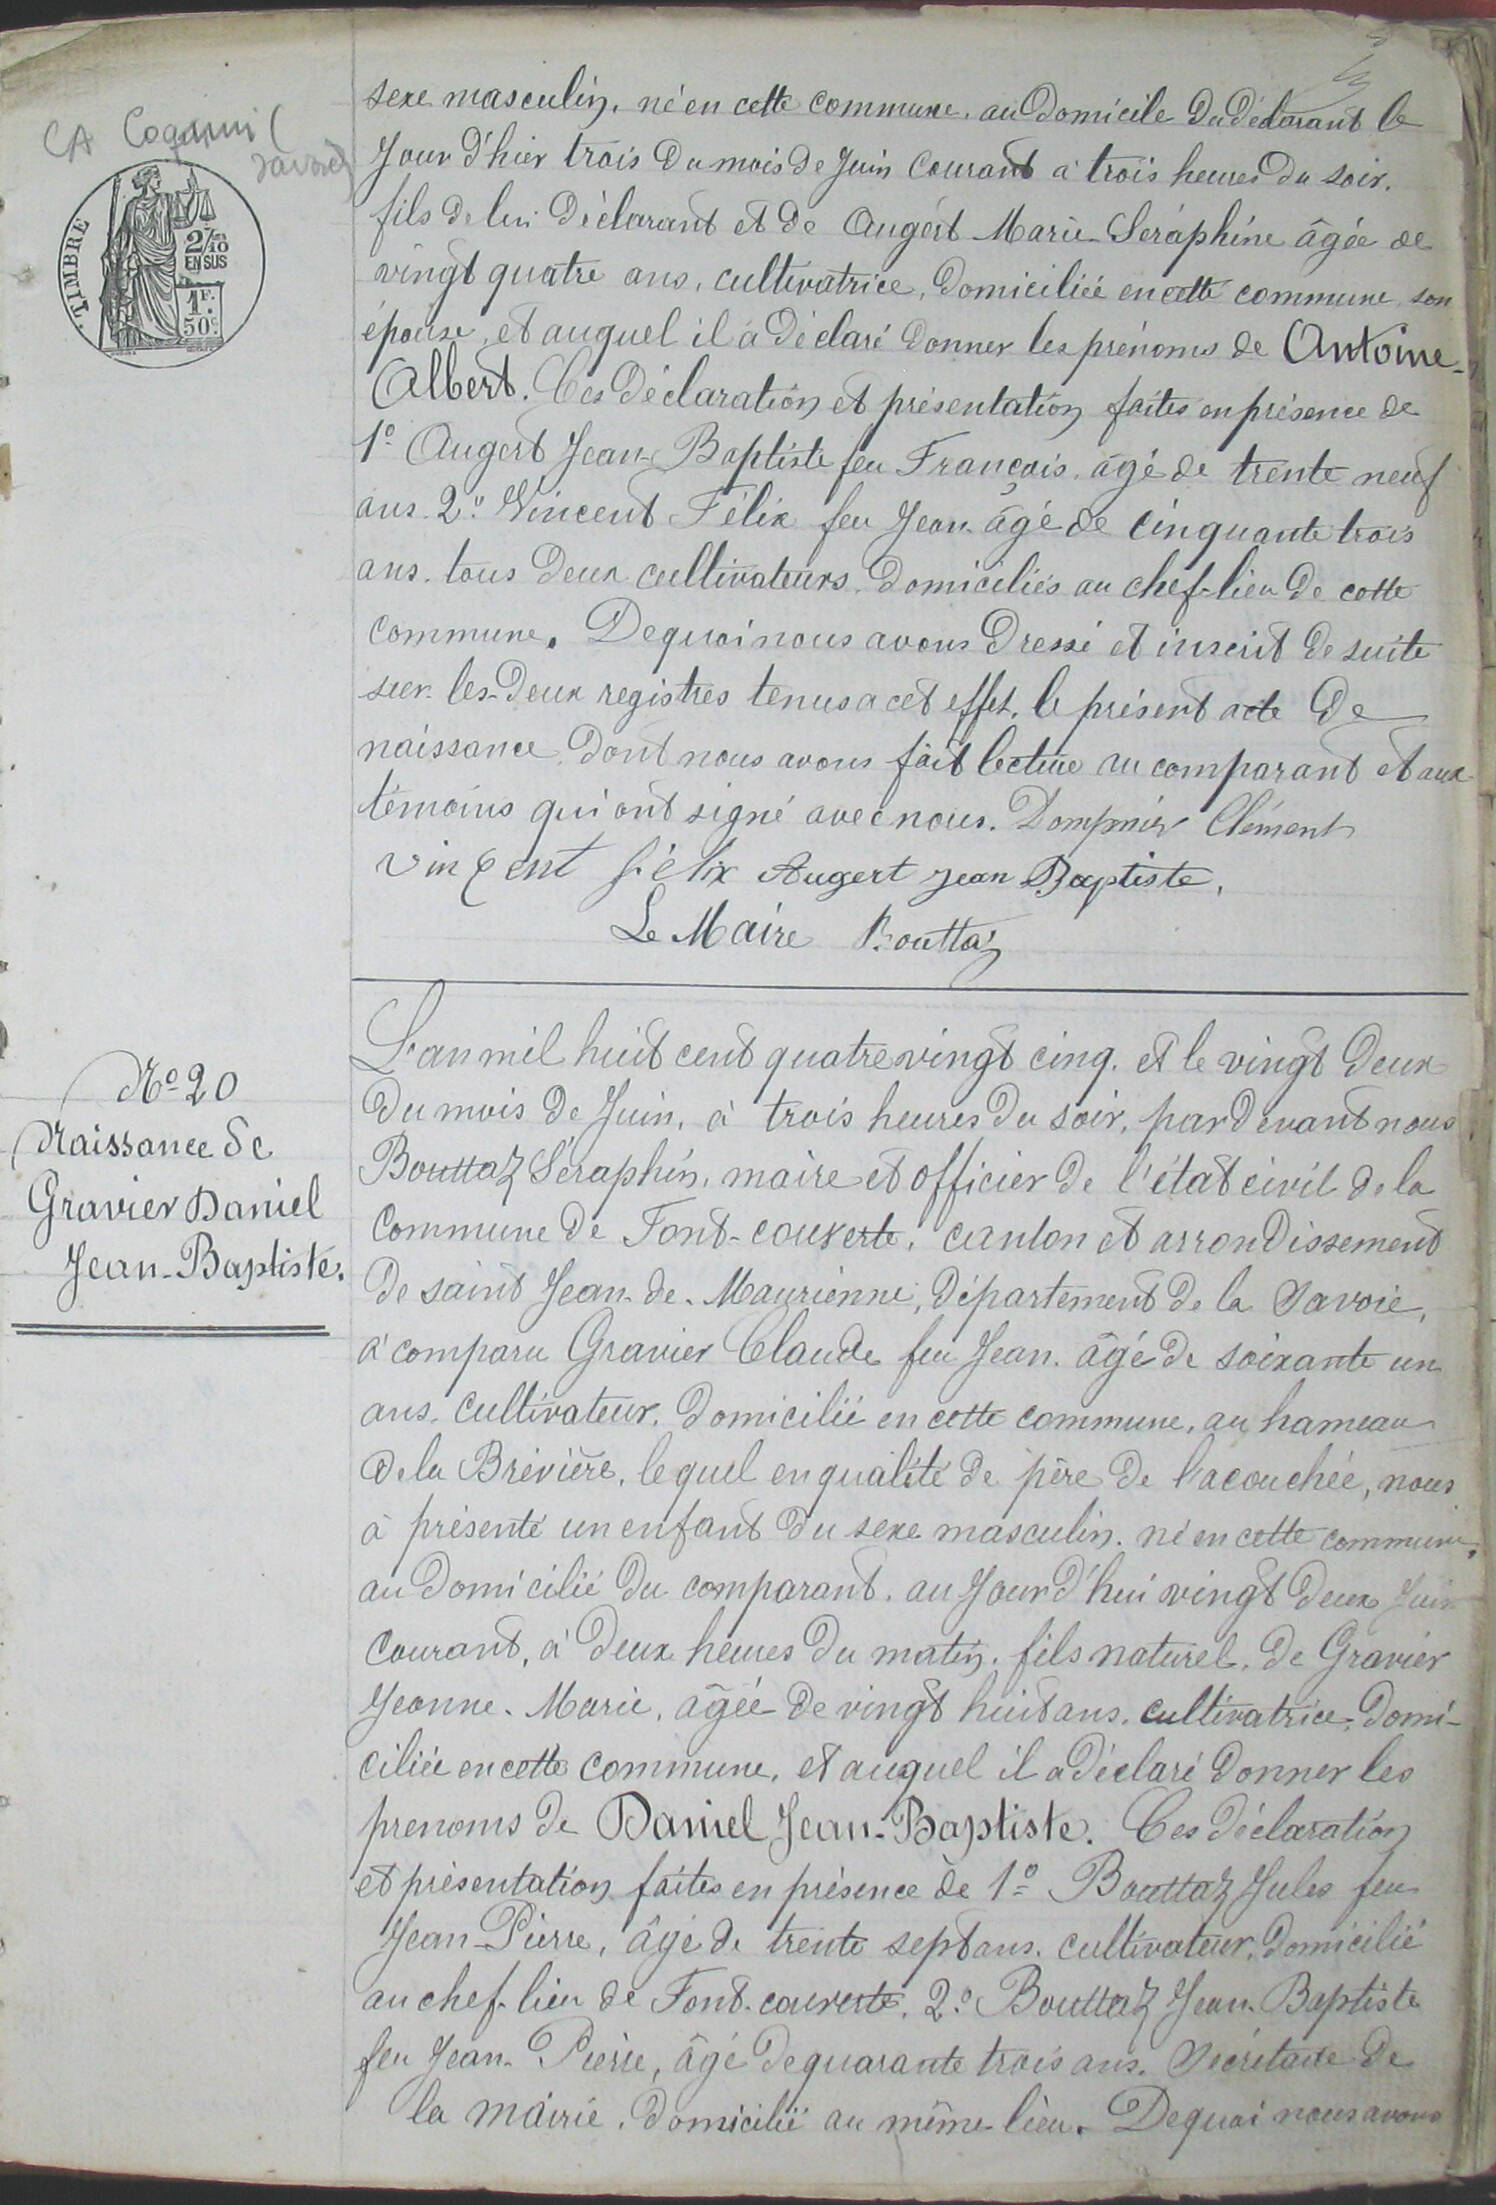 sexe masculin, né en cette commune, au domicile du déclarant le
Jour d'hier trois du mois de Juin courant à trois heures du soir.
fils de lui déclarant et de Augert Marie-Séraphine âgée de
vingt quatre ans, cultivatrice, domiciliée en cette commune, son
épouse, et auquel il a déclaré donner les prénoms de Antoine-
Albert. Ces déclaration et présentation faites en présence de
1° Augert Jean-Baptiste feu François, âgé de trente neuf
ans 2° Vincent Félix feu Jean âgé de cinquante trois
ans, tous deux cultivateurs, domiciliés au chef-lieu de cette
commune. De quoi nous avons dressé et inscrit de suite
sur les deux registres tenus a cet effet, le présent acte de
naissance, dont nous avons fait lecture au comparant et aux
témoins qui ont signé avec nous. Dompnier Clément
vinçent félix Augert jean Baptiste.
Le Maire Bouttaz
CA
TIMBRE
2/10
EN SUS
1F.
50c.
N° 20
Naissance de
Gravier Daniel
Jean-Baptiste.
L'an mil huit cent quatre vingt cinq, et le vingt deux
du mois de Juin, à trois heures du soir, pardevant nous
Bouttaz Séraphin, maire et officier de l'état civil de la
Commune de Font-couverte, canton et arrondissement
de saint Jean-de-Maurienne, département de la Savoie,
a comparu Gravier Claude feu Jean, âgé de soixante un
ans, cultivateur, domicilié en cette commune, au hameau
de la Brévière, lequel en qualité de père de l'acouchée, nous
à présenté un enfant du sexe masculin, né en cette commune,
au domicilié du comparant, au Jour d'hui vingt deux Juin
courant, à deux heures du matin, fils naturel, de Gravier
Jeanne-Marie, âgée de vingt huit ans, cultivatrice, domi-
ciliée en cette commune, et auquel il a déclaré donner les
prenoms de Daniel Jean-Baptiste. Ces déclaration
et présentation faites en présence de 1° Bouttaz Jules feu
Jean-Pierre, âgé de trente sept ans, cultivateur, domicilié
au chef-lieu de Font-couverte, 2° Bouttaz Jean-Baptiste
feu Jean-Pierre, âgé de quarante trois ans, Sécrétaire de
la mairie, domicilié au même lieu. De quoi nous avons